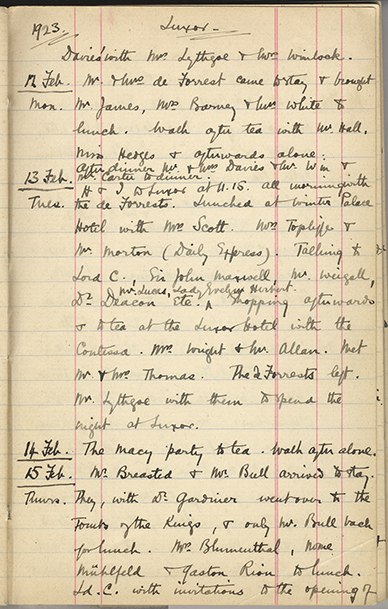 1923. Luxor.
Davies' with Mrs Lythgoe & Mrs Winlock.
12 Feb. Mr. & Mrs de Forrest came to stay & brought
Mon. Mr. James, Mrs Barney & Mrs White to
lunch. Walk after tea with Mr. Hall.
Miss Hedges & afterwards alone.
After dinner Mr. & Mrs Davies & Mr. W in &
Mr. Carter to dinner.
13 Feb. H & I to Luxor at 11.15. all morning with
Tues. the de Forrests. Lunched at Winter Palace
Hotel with Mrs. Scott. Mrs Topliffe &
Mr. Morton (Daily Express). Talking to
Lord C. Sir John Maxwell, Mr. Weigall,
Mr. Lucas, Lady Evelyn Herbert.
Dr. Deacon etc. Shopping afterwards
& to tea at the Luxor Hotel with the
Contessa. Mrs. Wright & Mr. Allan. Met
Mr. & Mrs. Thomas. The de Forrests left.
Mr. Lythgoe with them to spend the
night at Luxor.
14 Feb. The Macy party to tea. Walk after alone.
15 Feb. Mr. Breasted & Mr. Bull arrived to stay.
Thurs. They, with Dr. Gardiner went over to the
Tombs of the Kings, & only Mr. Bull back
for lunch. Mrs. Blumenthal, Mme
Mühlfeld & Gaston Rion to lunch.
Ld. C. with invitations to the opening of